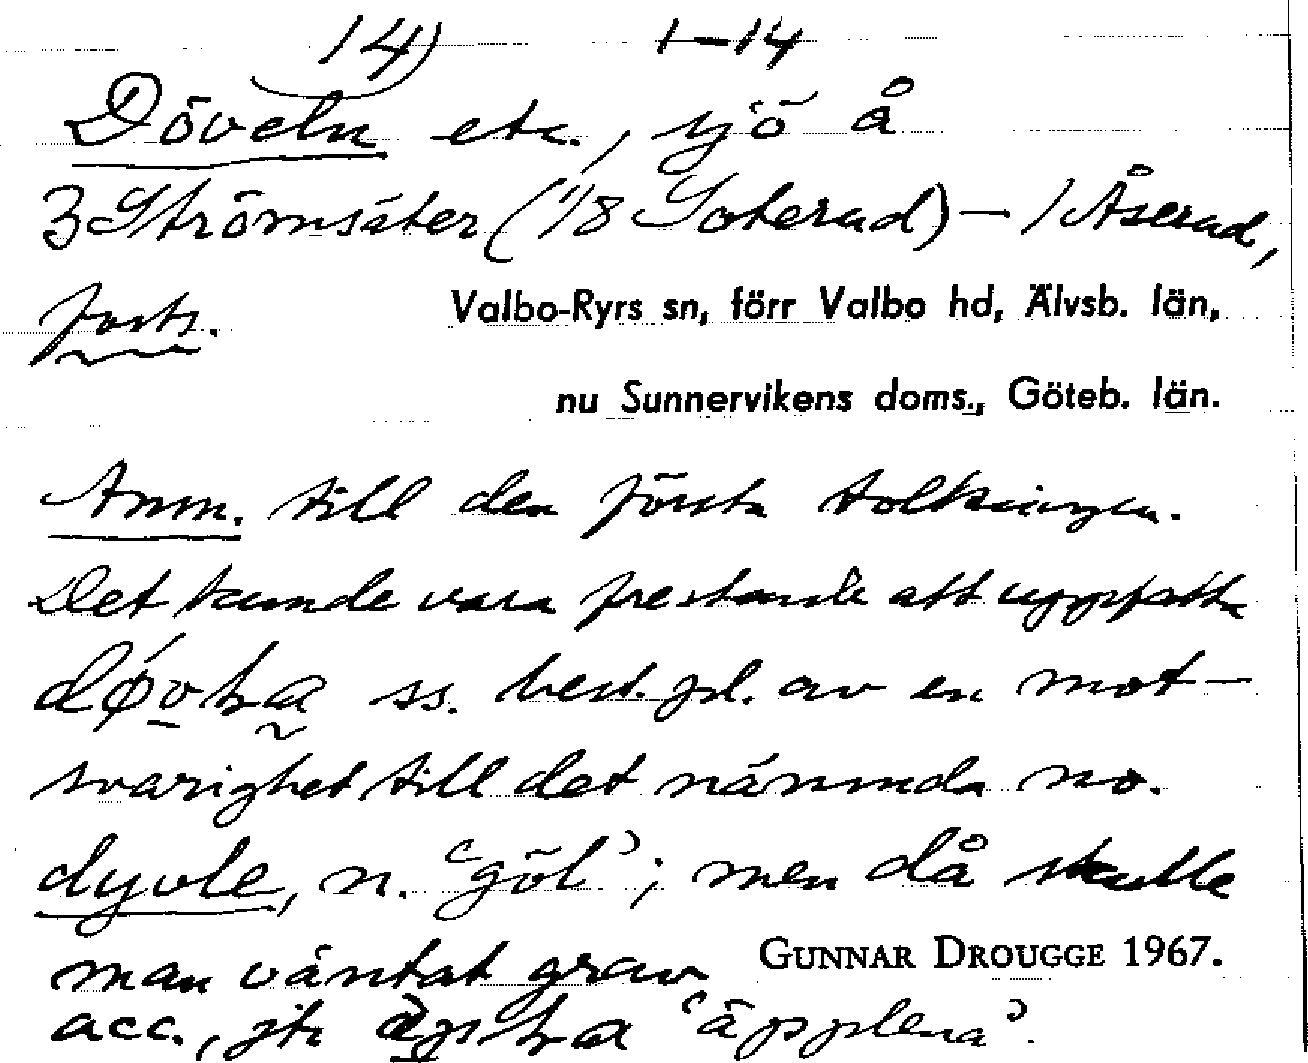 14) 1–14
Döveln etc., sjö å
3 Strömsäter (1/8 Soterud) – 1 Åserud,
forts.
Valbo-Ryrs sn, förr Valbo hd, Älvsb. län,
nu Sunnervikens doms., Göteb. län.
Anm. till den första tolkningen.
Det kunde vara frestande att uppfatta
ss. best. pl. av en mot-
svarighet till det nämnda no.
dyvle, n. ‘göl’; men då skulle
man väntat grav
GUNNAR DROUGGE 1967.
acc., jfr ‘äpplena’.